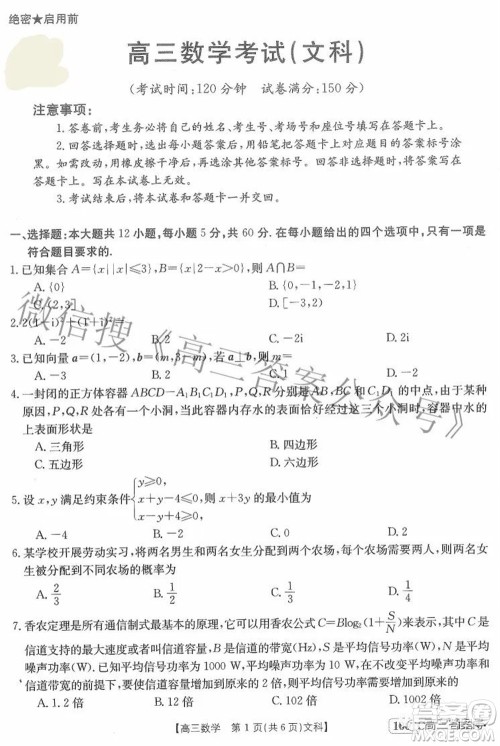 绝密★启用前
高三数学考试(文科)
(考试时间:120分钟 试卷满分:150分)
注意事项:
1.答卷前,考生务必将自己的姓名、考生号、考场号和座位号填写在答题卡上。
2.回答选择题时,选出每小题答案后,用铅笔把答题卡上对应题目的答案标号涂
黑。如需改动,用橡皮擦干净后,再选涂其他答案标号。回答非选择题时,将答案写
在答题卡上。写在本试卷上无效。
3.考试结束后,将本试卷和答题卡一并交回。
一、选择题:本大题共12小题,每小题5分,共60分.在每小题给出的四个选项中,只有一项是
符合题目要求的.
1.已知集合A={x||x|≤3},B={x|2-x>0},则A∩B=
A.{0} B.{0,-1,-2,1}
C.(2,3] D.[-3,2)
2.2(1-i)²+(1+i)²=
A.-2 B.2 C.-2i D.2i
3.已知向量a=(1,-2),b=(m,3-m),若a⊥b,则m=
A.-3 B.-2 C.2 D.3
4.一封闭的正方体容器ABCD-A₁B₁C₁D₁,P,Q,R分别是AB,BC和C₁D₁的中点,由于某种
原因,P,Q,R处各有一个小洞,当此容器内存水的表面恰好经过这三个小洞时,容器中水的
上表面形状是
A.三角形 B.四边形
C.五边形 D.六边形
5.设x,y满足约束条件{y≥0, x+y-4≤0, x-y≥0, 则x+3y的最小值为
A.-4 B.2 C.0 D.4
6.某学校开展劳动实习,将两名男生和两名女生分配到两个农场,每个农场两人,则两名女
生被分配到不同农场的概率为
A.2/3 B.1/2 C.1/3 D.1/4
7.香农定理是所有通信制式最基本的原理,它可以用香农公式C=Blog₂(1+S/N)来表示,其中C是
信道支持的最大速度或者叫信道容量,B是信道的带宽(Hz),S是平均信号功率(W),N是平均
噪声功率(W).已知平均信号功率为1000 W,平均噪声功率为10 W,在不改变平均噪声功率和
信道带宽的前提下,要使信道容量增加到原来的2倍,则平均信号功率需要增加到原来的
A.1.2倍 B.12倍 C.102倍 D.1002倍
【高三数学 第1页(共6页)文科】
微信搜《高三答案公众号》